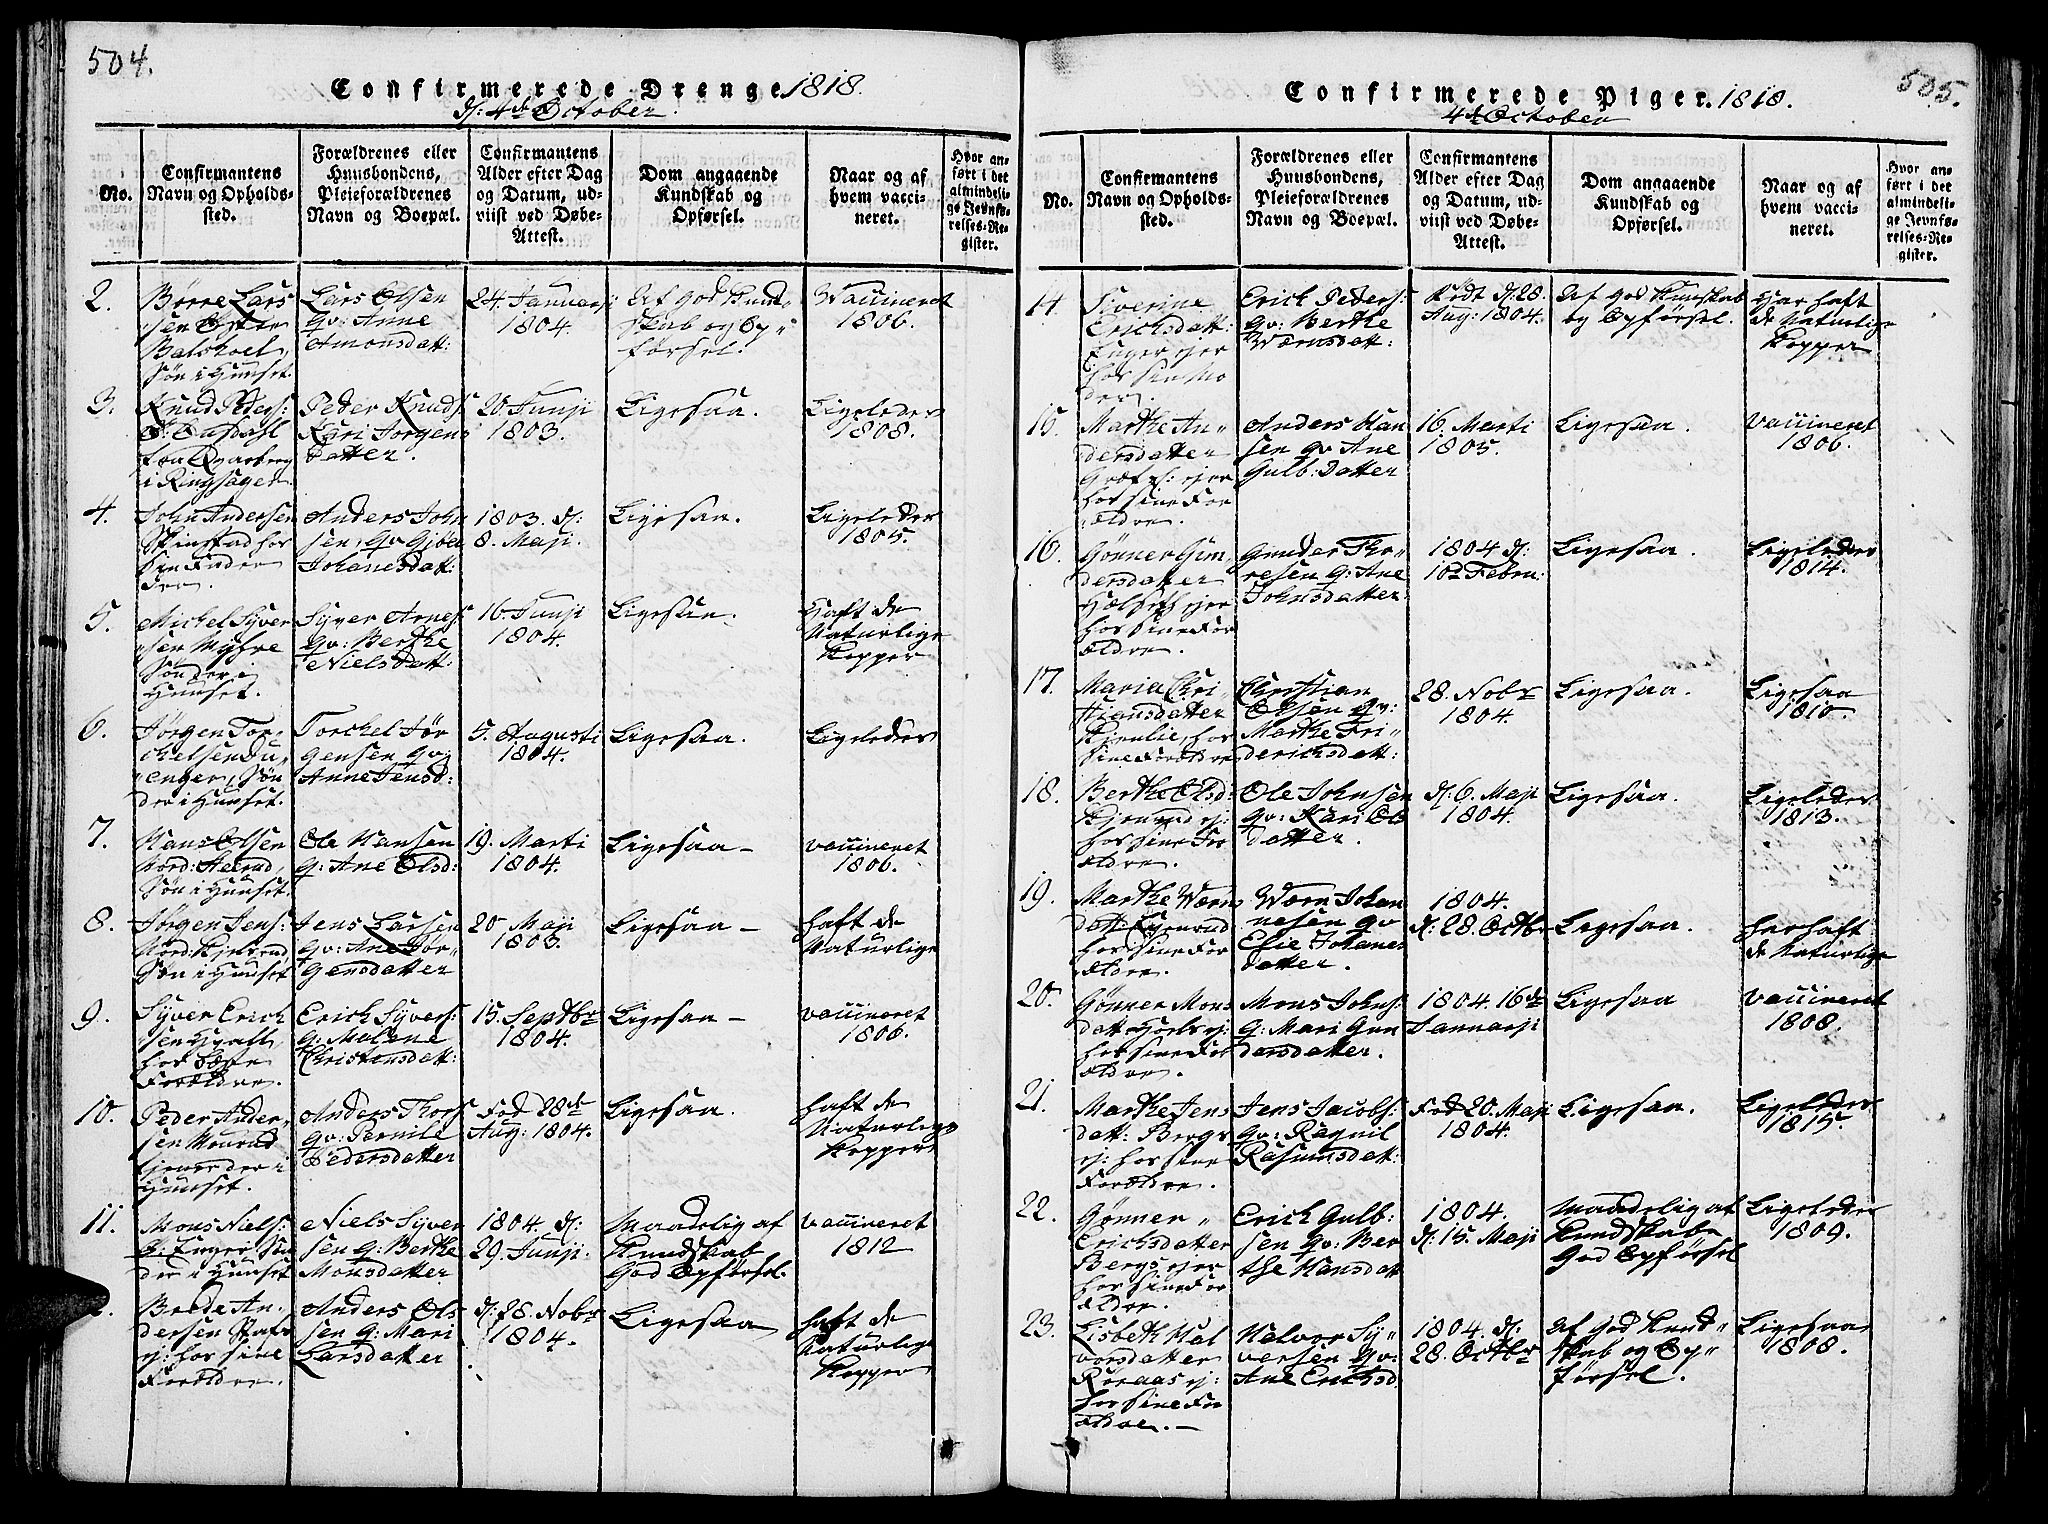 504.
Confirmerede Drenge 1818.
d: 4de October.
No.
Confirmantens
Navn og Opholds-
sted.
Forældrenes eller
Huusbondens,
Pleieforældrenes
Navn og Boepæl.
Confirmantens
Alder efter Dag
og Datum, ud-
viist ved Døbe-
Attest.
Dom angaaende
Kundskab og
Opførsel.
Naar og af
hvem vacci-
neret.
Hvor an-
ført i det
almindeli-
ge Jevnfø-
relses-Re-
gister.
2.
Børre Lars
sen
Søn i Huuset.
Lars Olsen
qv: Anne
Amonsdatt:
24. Januarji
1804.
Af god Kund-
skab og Op-
førsel.
Vaccineret
1806.
3.
Knud Peders:
i Ringsager.
Peder Knuds.
Kari Jorgens
datter.
20. Junji
1803.
Ligesaa.
Ligeledes
1808.
4.
John Andersen
Anders John
sen, qv
Johanesdatt:
1803. d:
8. Maji.
Ligesaa.
Ligeledes
1805.
5.
Michel Syver
sen Myhre
Søn der i
Huuset.
Syver Arnes:
qv: Berthe
Nielsdatt:
16. Junji
1804.
Ligesaa.
Haft de
Naturlige
Kopper
6.
Jörgen Tor-
chelsen
enger, Søn
der i Huuset.
Torchel Jör
gensen qv:
Anne Jensd:
5. Augusti
1804.
Ligesaa.
Ligeledes
7.
Hans Olsen
Nord:
Søn i Huuset.
Ole Hansen
q: Ane Olsd:
19. Marti
1804.
Ligesaa –
vaccineret
1806.
8.
Jörgen Jens:
Nord:
Søn i Huuset
Jens Larsen
qv: Ane Jör-
gensdatter
20 Maji
1803.
Ligesaa –
haft de
Naturlige
9.
Syver Erich
sen
hos
Forældre.
Erich Syvers:
q: Malene
Christensdatt:
15. Septbr
1804.
Ligesaa –
vaccineret
1806.
10.
Peder Ander-
sen
tjener der i
Huuset.
Anders Thors
qv: Pernile
Pedersdatter
Fød 28de
Aug: 1804.
Ligesaa.
haft de
Naturlige
Kopper
11.
Mons Niels:
Enger Søn
der i Huuset
Niels Syver
sen q: Berthe
Monsdatter
1804. d:
29. Junji.
Maadelig af
Kundskab
God Opførsel.
vaccineret
1812
Brede An-
dersen
ej: hos sine
Forældre.
Anders Ols
sen q: Mari
Larsdatter
d: 28. Nobr
1804.
Ligesaa
haft de
Naturlige
Kopper
505.
Confirmerede Piger. 1818.
4de October
No.
Confirmantens
Navn og Opholds-
sted.
Forældrenes eller
Huusbondens,
Pleieforældrenes
Navn og Boepæl.
Confirmantens
Alder efter Dag
og Datum, ud-
viist ved Døbe-
Attest.
Dom angaaende
Kundskab og
Opførsel.
Naar og af
hvem vacci-
neret.
Hvor an-
ført i det
almindeli-
ge Jevnfø-
relses-Re-
gister.
14.
Siverine
Erichsdatt:
Enger ejer
hos sin Mo
der.
Erich Peders:
qv: Berthe
Wærnsdatt:
Født d: 28.
Aug: 1804.
Af god Kundskab
og Opførsel.
Har haft
de Naturlige
Kopper
15.
Marthe An-
dersdatter
ejer
hos sine For
ældre.
Anders Han
sen qv Ane
Gulb: Datter
16. Marti
1805.
Ligesaa.
vaccineret
1806.
16.
Gønner Gun
dersdatter
ejer
hos sine For
ældre.
Gunder Tho-
resen q: Ane
Johnsdatter.
1804 d:
Febru:
Ligesaa.
Ligeledes
1814.
17.
Maria Chri-
stiansdatter
hos
sine Forældre
Christian
Olsen qv:
Marthe Fri-
derichsdatt:
28. Nobr
1804.
Ligesaa.
Ligesaa
1810.
18.
Berthe Olsd:
ej:
hos sine For
ældre.
Ole Johnsen
qv: Kari Ols
datter.
d: 6. Maji
1804.
Ligesaa.
Ligeledes
1813.
19.
Marthe Wærns
datt:
hos sine For
ældre.
Wærn Johan
nesen qv
Elie Johanes
datter.
1804.
d: 28. Octbr
Ligesaa.
har haft
de Naturlige
20.
Gønner Mons
datt ej:
hos sine For
ældre.
Mons Johns:
q: Mari Gun
dersdatter.
1804. 16de
Januarji
Ligesaa
vaccineret
1808.
21.
Marthe Jens
datt: Bergs
ej: hos sine
Forældre.
Jens Jacobs:
qv: Ragnil
Rasmusdatt:
Fød 20. Maji
1804.
Ligesaa.
Ligeledes
1815.
22.
Gønner
Erichsdatter
Bergs ejer
hos sine For
ældre.
Erich Gulb:
sen qv: Ber
the Hansdatt
1804.
d: 15. Maji
Maadelig af
Kundskab
God Opførsel
Ligeledes
1809.
23.
Lisbeth Hal
vorsdatter
Røraas ej:
hos sine For
ældre. –
Halvor Sy-
versen qv:
Ane Erichsd.
1804. d:
28. Octbr
Af God Kund-
skab og Op-
førsel.
Ligesaa
1808.